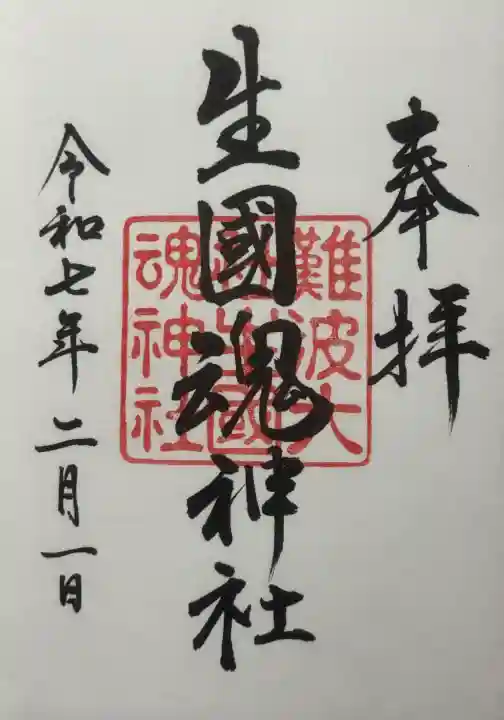 奉拝
生國魂神社
難波大
社生國
魂神社
令和七年二月一日